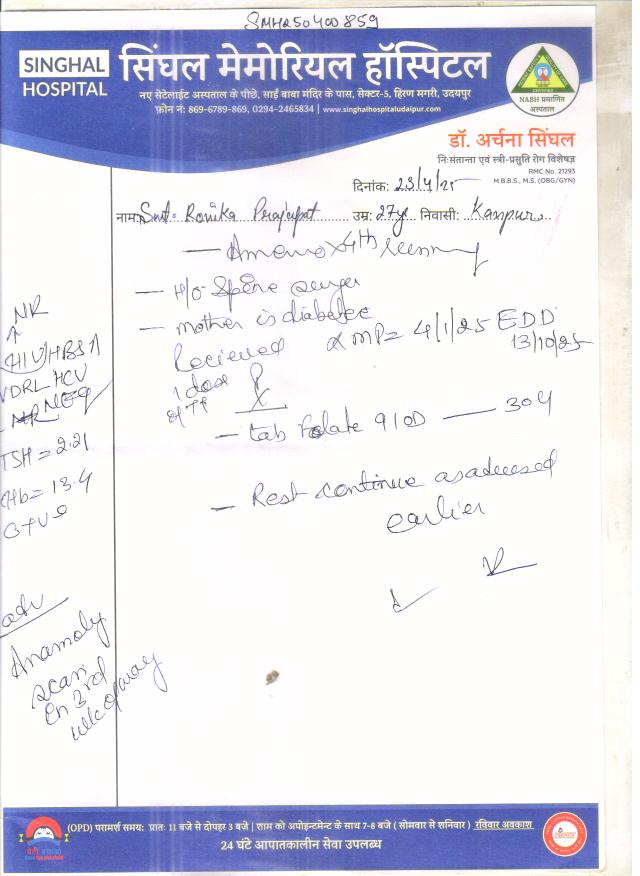 SMH250400859
SINGHAL
HOSPITAL
सिंघल मेमोरियल हॉस्पिटल
नए सेटेलाईट अस्पताल के पीछे, साई बाबा मंदिर के पास, सेक्टर-5, हिरण मगरी, उदयपुर
फ़ोन नं: 869-6789-869, 0294-2465834 | www.singhalhospitaludaipur.com
NABH प्रमाणित
अस्पताल
डॉ. अर्चना सिंघल
नि:संतान्ता एवं स्त्री-प्रसुति रोग विशेषज्ञ
RMC No. 21293
M.B.B.S., M.S. (OBG/GYN)
दिनांक: 23/4/25
नाम: Smt. Ronika Prajapat उम्र: 27yr निवासी: Kanpur
— Ameno x 4th
— H/O Spine
— mother is diabetec
Recieved LMP= 4/1/25 EDD
13/10/25
1 dose
of TT
— tab Folate 910D — 30y
— Rest continue as adviced
earlier
NR
↑
HIV/HBSA
VDRL HCV
NEG
TSH = 2.21
Hb= 13.4
adv
Anamoly
scan
in 3rd
wk of may
(OPD) परामर्श समय: प्रातः 11 बजे से दोपहर 3 बजे | शाम को अपोइन्टमेन्ट के साथ 7-8 बजे ( सोमवार से शनिवार ) रविवार अवकाश
24 घंटे आपातकालीन सेवा उपलब्ध